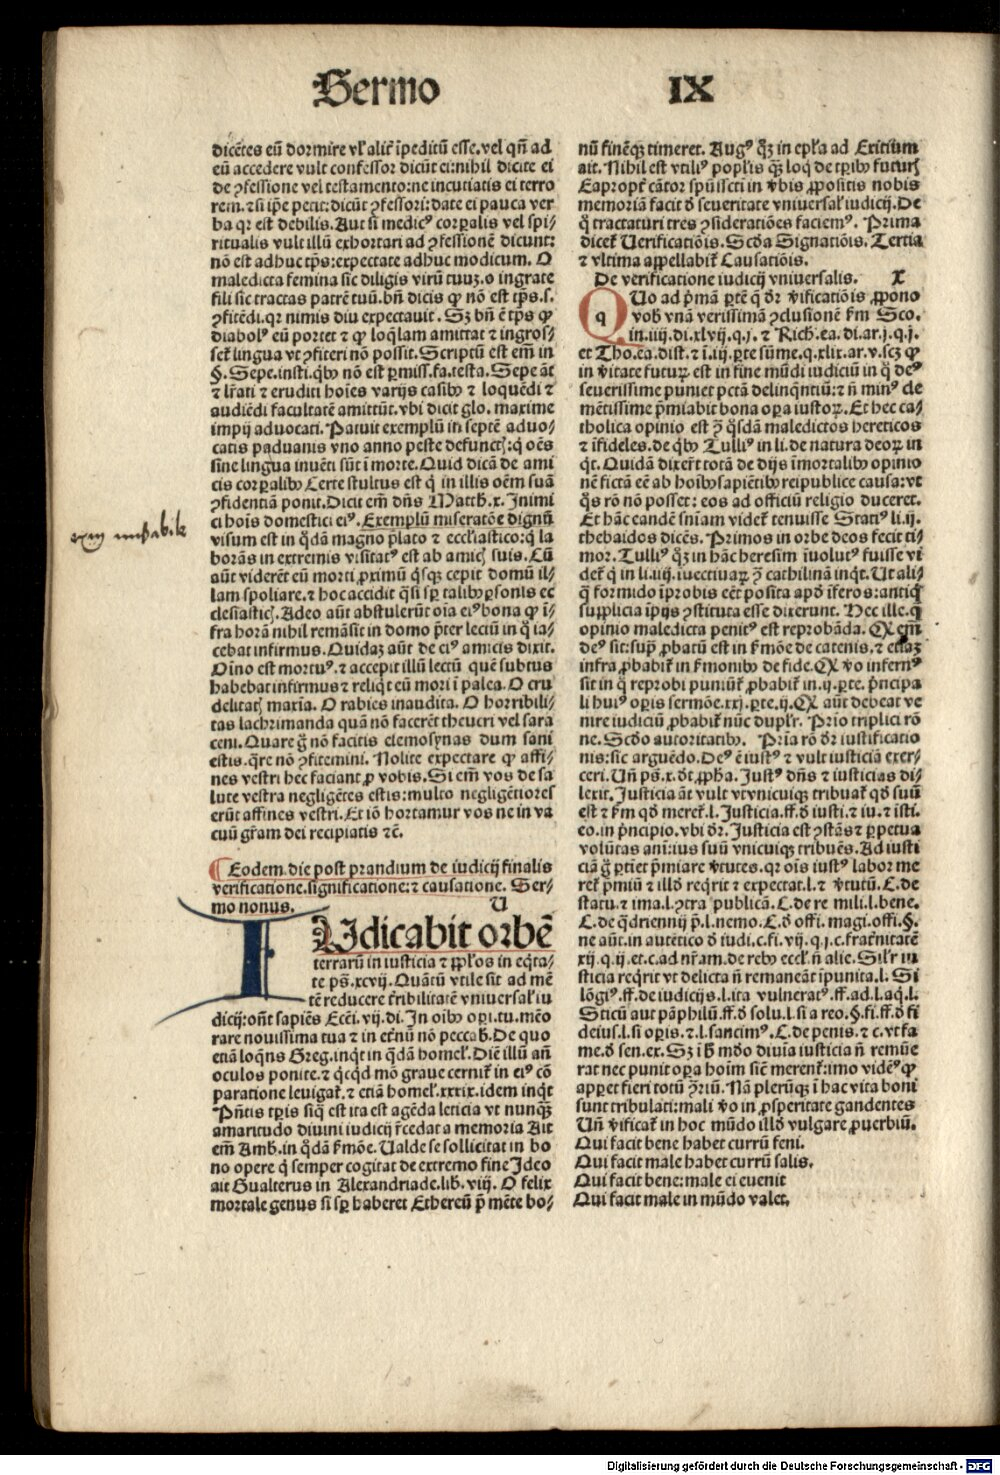 Sermo IX
dicẽtes eũ dormire vl' alit' ĩpeditũ esse. vel qñ ad
eũ accedere vult confessor dicũt ei: nihil dicite ei
de ꝯfessione vel testamento: ne incutiatis ei terro
rem. ⁊ si ip̃e petit: dicũt ꝯfessori: date ei pauca ver
ba qr est debilis. Aut si medicꝰ corꝑalis vel spi⸗
ritualis vult illũ exhortari ad ꝯfessionẽ dicunt:
nõ est adhuc tp̃s: expectate adhuc modicum. O
maledicta femina sic diligis virũ tuuȝ. o ingrate
fili sic tractas patrẽ tuũ. bñ dicis ꝙ nõ est tp̃s. s.
ꝯfitẽdi. qr nimis diu expectauit. Sȝ bñ ẽ tp̃s ꝙ
diabolꝰ eũ portet ⁊ ꝙ loq̃lam amittat ⁊ ingros⸗
set' lingua vt ꝯfiteri nõ possit. Scriptũ est em̃ in
§. Sepe. insti. qibꝰ nõ est ꝑmiss. fa. testa. Sepe ãt
⁊ lr̃ati ⁊ eruditi hoĩes varijs casibꝰ ⁊ loquẽdi ⁊
audiẽdi facultatẽ amittũt. vbi dicit glo. maxime
impij aduocati. Patuit exemplũ iti septẽ aduo⸗
catis paduanis vno anno peste defunct': q oẽs
sine lingua inuẽti sũt ĩ morte. Quid dicã de ami
cis corꝑalibꝰ Certe stultus est q̃ in illis oẽm suã
ꝯfidentiã ponit. Dicit em̃ dñs Matth. x. Inimi
ci hoĩs domestici eiꝰ. Exemplũ miseratõe dignũ
visum est in q̃dã magno p̃lato ⁊ eccl'iastico: q̃ la
borãs in extremis visitatꝰ est ab amic' suis. Cũ
aũt viderẽt eũ morti ꝓximũ q̃sqȝ cepit domũ il⸗
lam spoliare. ⁊ hoc accidit q̃si sꝑ talibꝰ ꝑsonis ec
clesiastic'. Adeo aũt abstulerũt oĩa eiꝰ bona ꝙ ĩ⸗
fra horã nihil remãsit in domo p̃ter lectũ in q̃ ia⸗
cebat infirmus. Quidaȝ aũt de eiꝰ amicis dixit.
Oĩno est mortuꝰ. ⁊ accepit illũ lectũ quẽ subtus
habebat infirmus ⁊ reliq̃t eũ mori ĩ palea. O cru
delitat' maxĩa. O rabies inaudita. O horribili⸗
tas lachrimanda quã nõ facerẽt theucri vel sara
ceni. Quare g̃ nõ facitis elemosynas dum sani
estis. q̃re nõ ꝯfitemini. Nolite expectare ꝙ affi⸗
nes vestri hec faciant ꝓ vobis. Si em̃ vos de sa
lute vestra negligẽtes estis: multo negligẽtiores
erũt affines vestri. Et iõ hortamur vos ne in va
cuũ gr̃am dei recipiatis ⁊c̃.
Eodem die post prandium de iudicij finalis
verificatione. significatione: ⁊ causatione. Ser⸗
mo nonus. U
IUdicabit orbẽ
terrarũ in iusticia ⁊ pp̃los in eq̃ta⸗
te ps̃. xcvij. Quãtũ vtile sit ad mẽ
tẽ reducere tr̃ibilitatẽ vniuersal' iu
dicij: oñt sapiẽs Ecc̃i. vij. di. In oĩbꝰ oꝑi. tu. mẽo
rare nouissima tua ⁊ in etr̃nũ nõ peccab. De quo
etiã loq̃ns Greg. inq̃t in q̃dã homel'. Diẽ illũ añ
oculos ponite. ⁊ q̃cq̃d mõ graue cernit' in eiꝰ cõ
paratione leuigat'. ⁊ etiã homel'. xxxix. idem inq̃t
Pñtis tꝑis siq̃ est ita est agẽda leticia vt nunqȝ
amaritudo diuini iudicij r̃cedat a memoria Ait
em̃ Amb. in q̃dã ẜmõe. Ualde se sollicitat in bo
no opere q̃ semper cogitat de extremo fine Ideo
ait Gualterus in Alexandriade. lib. viij. O felix
mortale genus si sꝑ haberet Ethereũ p̃ mẽte bo⸗
nũ finẽqȝ timeret. Augꝰ q̃ȝ in epl'a ad Exitium
ait. Nihil est vtiliꝰ popl'is qȝ loq̃ de tꝑibꝰ futur'
Eapropt' cãtor spũssct̃i in v̾bis ꝓpositis nobis
memoriã facit d̾ seueritate vniuersal' iudicij. De
q̃ tractaturi tres ꝯsideratiões faciemꝰ. Prima
dicet' Uerificatiõis. Scd̃a Signatiõis. Tertia
⁊ vltima appellabit' Causatiõis.
De verificatione iudicij vniuersalis. X
QUo ad p̃mã ꝑtẽ q̃ dr̃ v̾ificatiõis ꝓpono
vob' vnã verissimã ꝯclusionẽ ẜm Sco.
in. iiij. di. xlvij. q. j. ⁊ Rich. ea. di. ar. j. q. j.
et Tho. ea. dist. ⁊ ĩ. iij. ꝑte sũme. q. xlix. ar. v. scȝ ꝙ
in v̾itate futuꝝ est in fine mũdi iudiciũ in q̃ deꝰ
seuerissime puniet pctã delinq̃ntiũ: ⁊ ñ minꝰ cle
mẽtissime p̃miabit bona oꝑa iustoꝝ. Et hec ca⸗
tholica opinio est ꝯ̃ q̃sdã maledictos hereticos
⁊ ĩfideles. de q̃bꝰ Tulliꝰ in li. de natura deoꝝ in
q̃t. Quidã dixer̃t totã de dijs ĩmortalibꝰ opinio
nẽ fictã eẽ ab hoĩbꝰ sapiẽtibꝰ reipublice causa: vt
q̃s rõ nõ posset: eos ad officiũ religio duceret.
Et hãc eandẽ sñiam videt' tenuisse Statiꝰ li. ij.
thebaidos dicẽs. Primos in orbe deos fecit ti⸗
mor. Tulliꝰ q̃ȝ in hãc heresim ĩuolutꝰ fuisse vi
det' q̃ in li. iiij. iuectiuaꝝ ꝯ̃ cathilinã inq̃t. Ut ali⸗
q̃ formido ĩprobis eẽt posita apd̾ ĩferos: antiq̃
supplicia ĩpijs ꝯstituta esse dixerunt. Hec ille. q̃
opinio maledicta penitꝰ est reprobãda. Qꝫ em̃
deꝰ sit: sup̃ ꝓbatũ est in ẜmõe de catenis. ⁊ etiaȝ
infra ꝓbabit' in ẜmonibꝰ de fide. Qꝫ v̾o infernꝰ
sit in q̃ reprobi puniũt' ꝓbabit' in. ij. ꝑte. p̃ncipa
li huiꝰ oꝑis sermõe. xxj. ꝑte. ij. Qꝫ aũt debeat ve
nire iudiciũ ꝓbabit' nũc dupl'r. Prĩo triplici rõ
ne. Scd̃o autoritatibꝰ. Prĩa rõ dr̃ iustificatio
nis: sic arguẽdo. Deꝰ ẽ iustꝰ ⁊ vult iusticiã exer⸗
ceri. Uñ ps̃. x. d̾t ꝓpha. Justꝰ dñs ⁊ iusticias di⸗
lexit. Justicia ãt vult vt vnicuiqȝ tribuat' qd̾ suũ
est ⁊ ẜm qd̾ meret'. l. Justicia. ff. d̾ iusti. ⁊ iu. ⁊ ĩsti.
eo. in p̃ncipio. vbi dr̃. Justicia est ꝯstãs ⁊ ꝑpetua
volũtas ani: ius suũ vnicuiqȝ tribuẽs. Ad iusti
ciã g̃ ꝑtiet p̃miare v̾tutes. qr oĩs iustꝰ labor me
ret' p̃miũ ⁊ illd̾ req̃rit ⁊ expectat. l. ⁊ v̾tutũ. C. de
statu. ⁊ ima. l. ꝯtra publicã. C. de re mili. l. bene.
C. de q̃driennij p̃. l. nemo. C. d̾ offi. magi. offi. §.
ne aũt. in autẽtico d̾ iudi. c. fi. vij. q. j. c. frat'nitatẽ
xij. q. ij. et. c. ad nr̃am. de rebꝰ eccl'. ñ alie. Sil'r iu
sticia req̃rit vt delicta ñ remaneãt ĩpunita. l. Si
lõgiꝰ. ff. de iudicijs. l. ita vulneratꝰ. ff. ad. l. aq̃. l.
Sticũ aut pãphilũ. ff. d̾ solu. l. si a reo. §. fi. ff. d̾ fi
deius. l. si oꝑis. ⁊ l. sancimꝰ. C. de penis. ⁊ c. vt fa
me. d̾ sen. ex. Sȝ ĩ h̾ mũdo diuĩa iusticia ñ remũe
rat nec punit oꝑa hoĩm sic̃ merent': imo videmꝰ ꝙ
apꝑet fieri totũ ꝯ̃riũ. Nã plerũqȝ ĩ hac vita boni
sunt tribulati: mali v̾o in ꝓsperitate gaudentes
Uñ v̾ificat' in hoc mũdo illd̾ vulgare ꝓuerbiũ.
Qui facit bene habet currũ feni.
Qui facit male habet currũ salis.
Qui facit bene: male ei euenit
Qui facit male in mũdo valet.
Digitalisierung gefördert durch die Deutsche Forschungsgemeinschaft - DFG